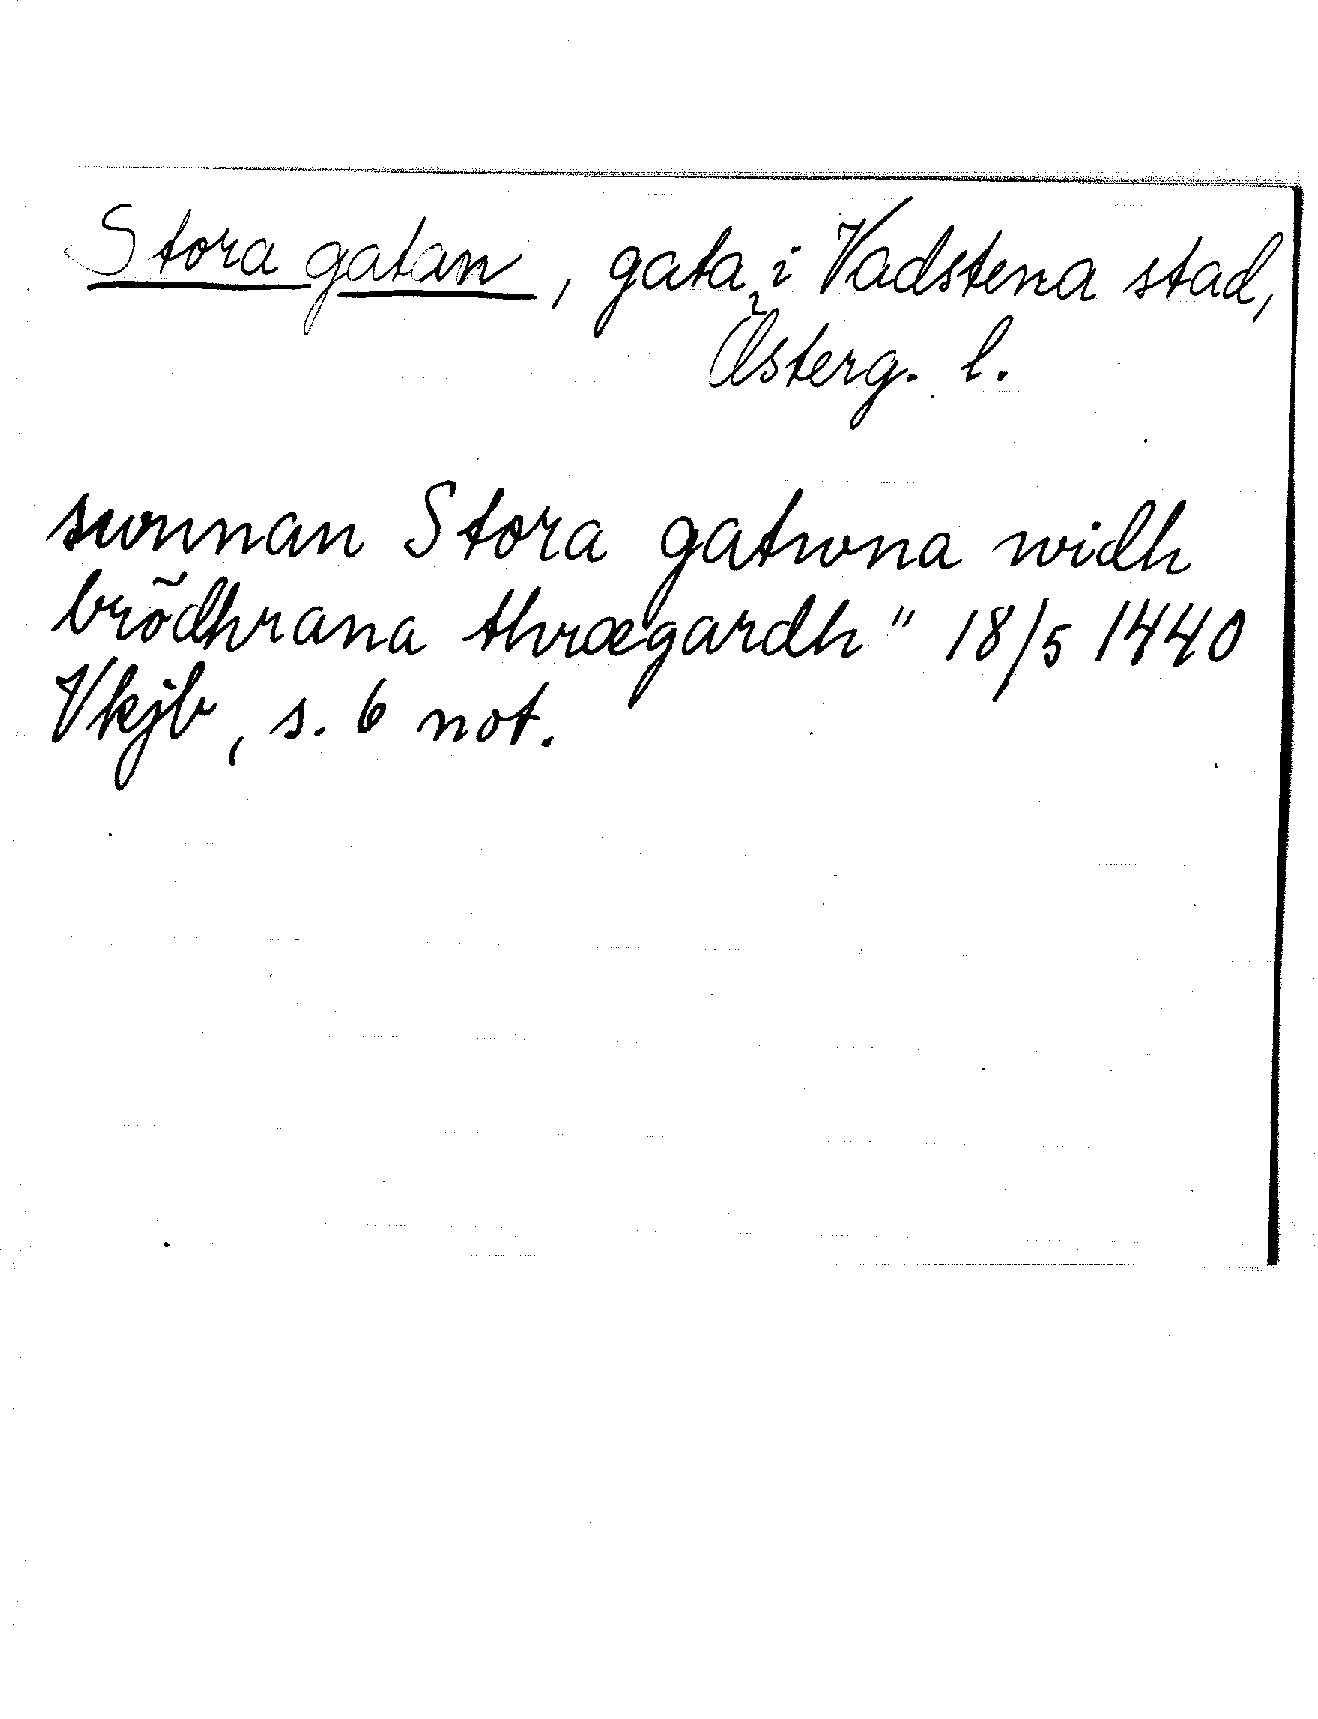 Stora gatan, gata i Vadstena stad,
Österg. l.
swnnan Stora gatwna widh
brödhrana thrægardh" 18/5 1440
Vkjb, s. 6 not.